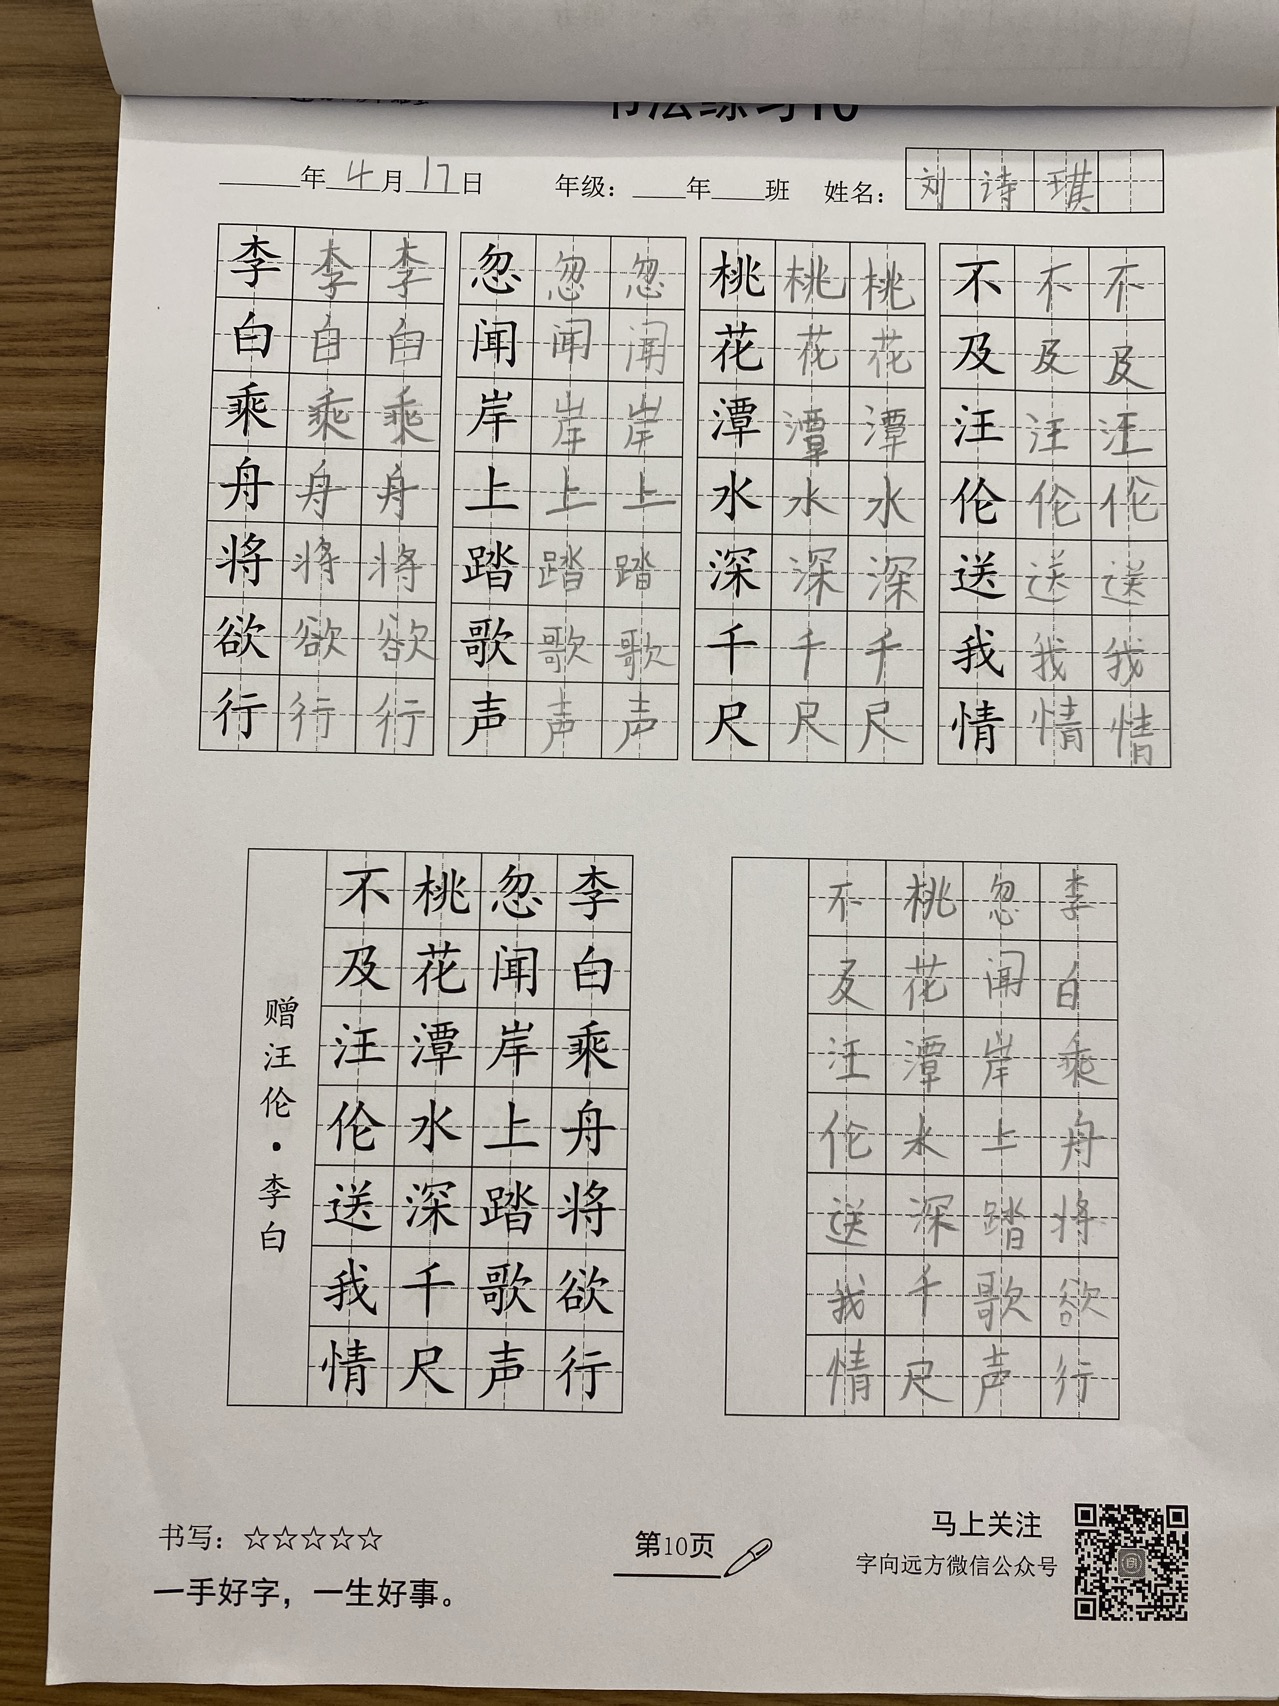 书法练习10
年4月17日 年级：年班 姓名：刘诗琪
李李李 忽忽忽 桃桃桃 不不不
白白白 闻闻闻 花花花 及及及
乘乘乘 岸岸岸 潭潭潭 汪汪汪
舟舟舟 上上上 水水水 伦伦伦
将将将 踏踏踏 深深深 送送送
欲欲欲 歌歌歌 千千千 我我我
行行行 声声声 尺尺尺 情情情
李白乘舟将欲行
忽闻岸上踏歌声
桃花潭水深千尺
不及汪伦送我情
赠汪伦·李白
李白乘舟将欲行
忽闻岸上踏歌声
桃花潭水深千尺
不及汪伦送我情
书写：☆☆☆☆☆
一手好字，一生好事。
第10页
马上关注
字向远方微信公众号